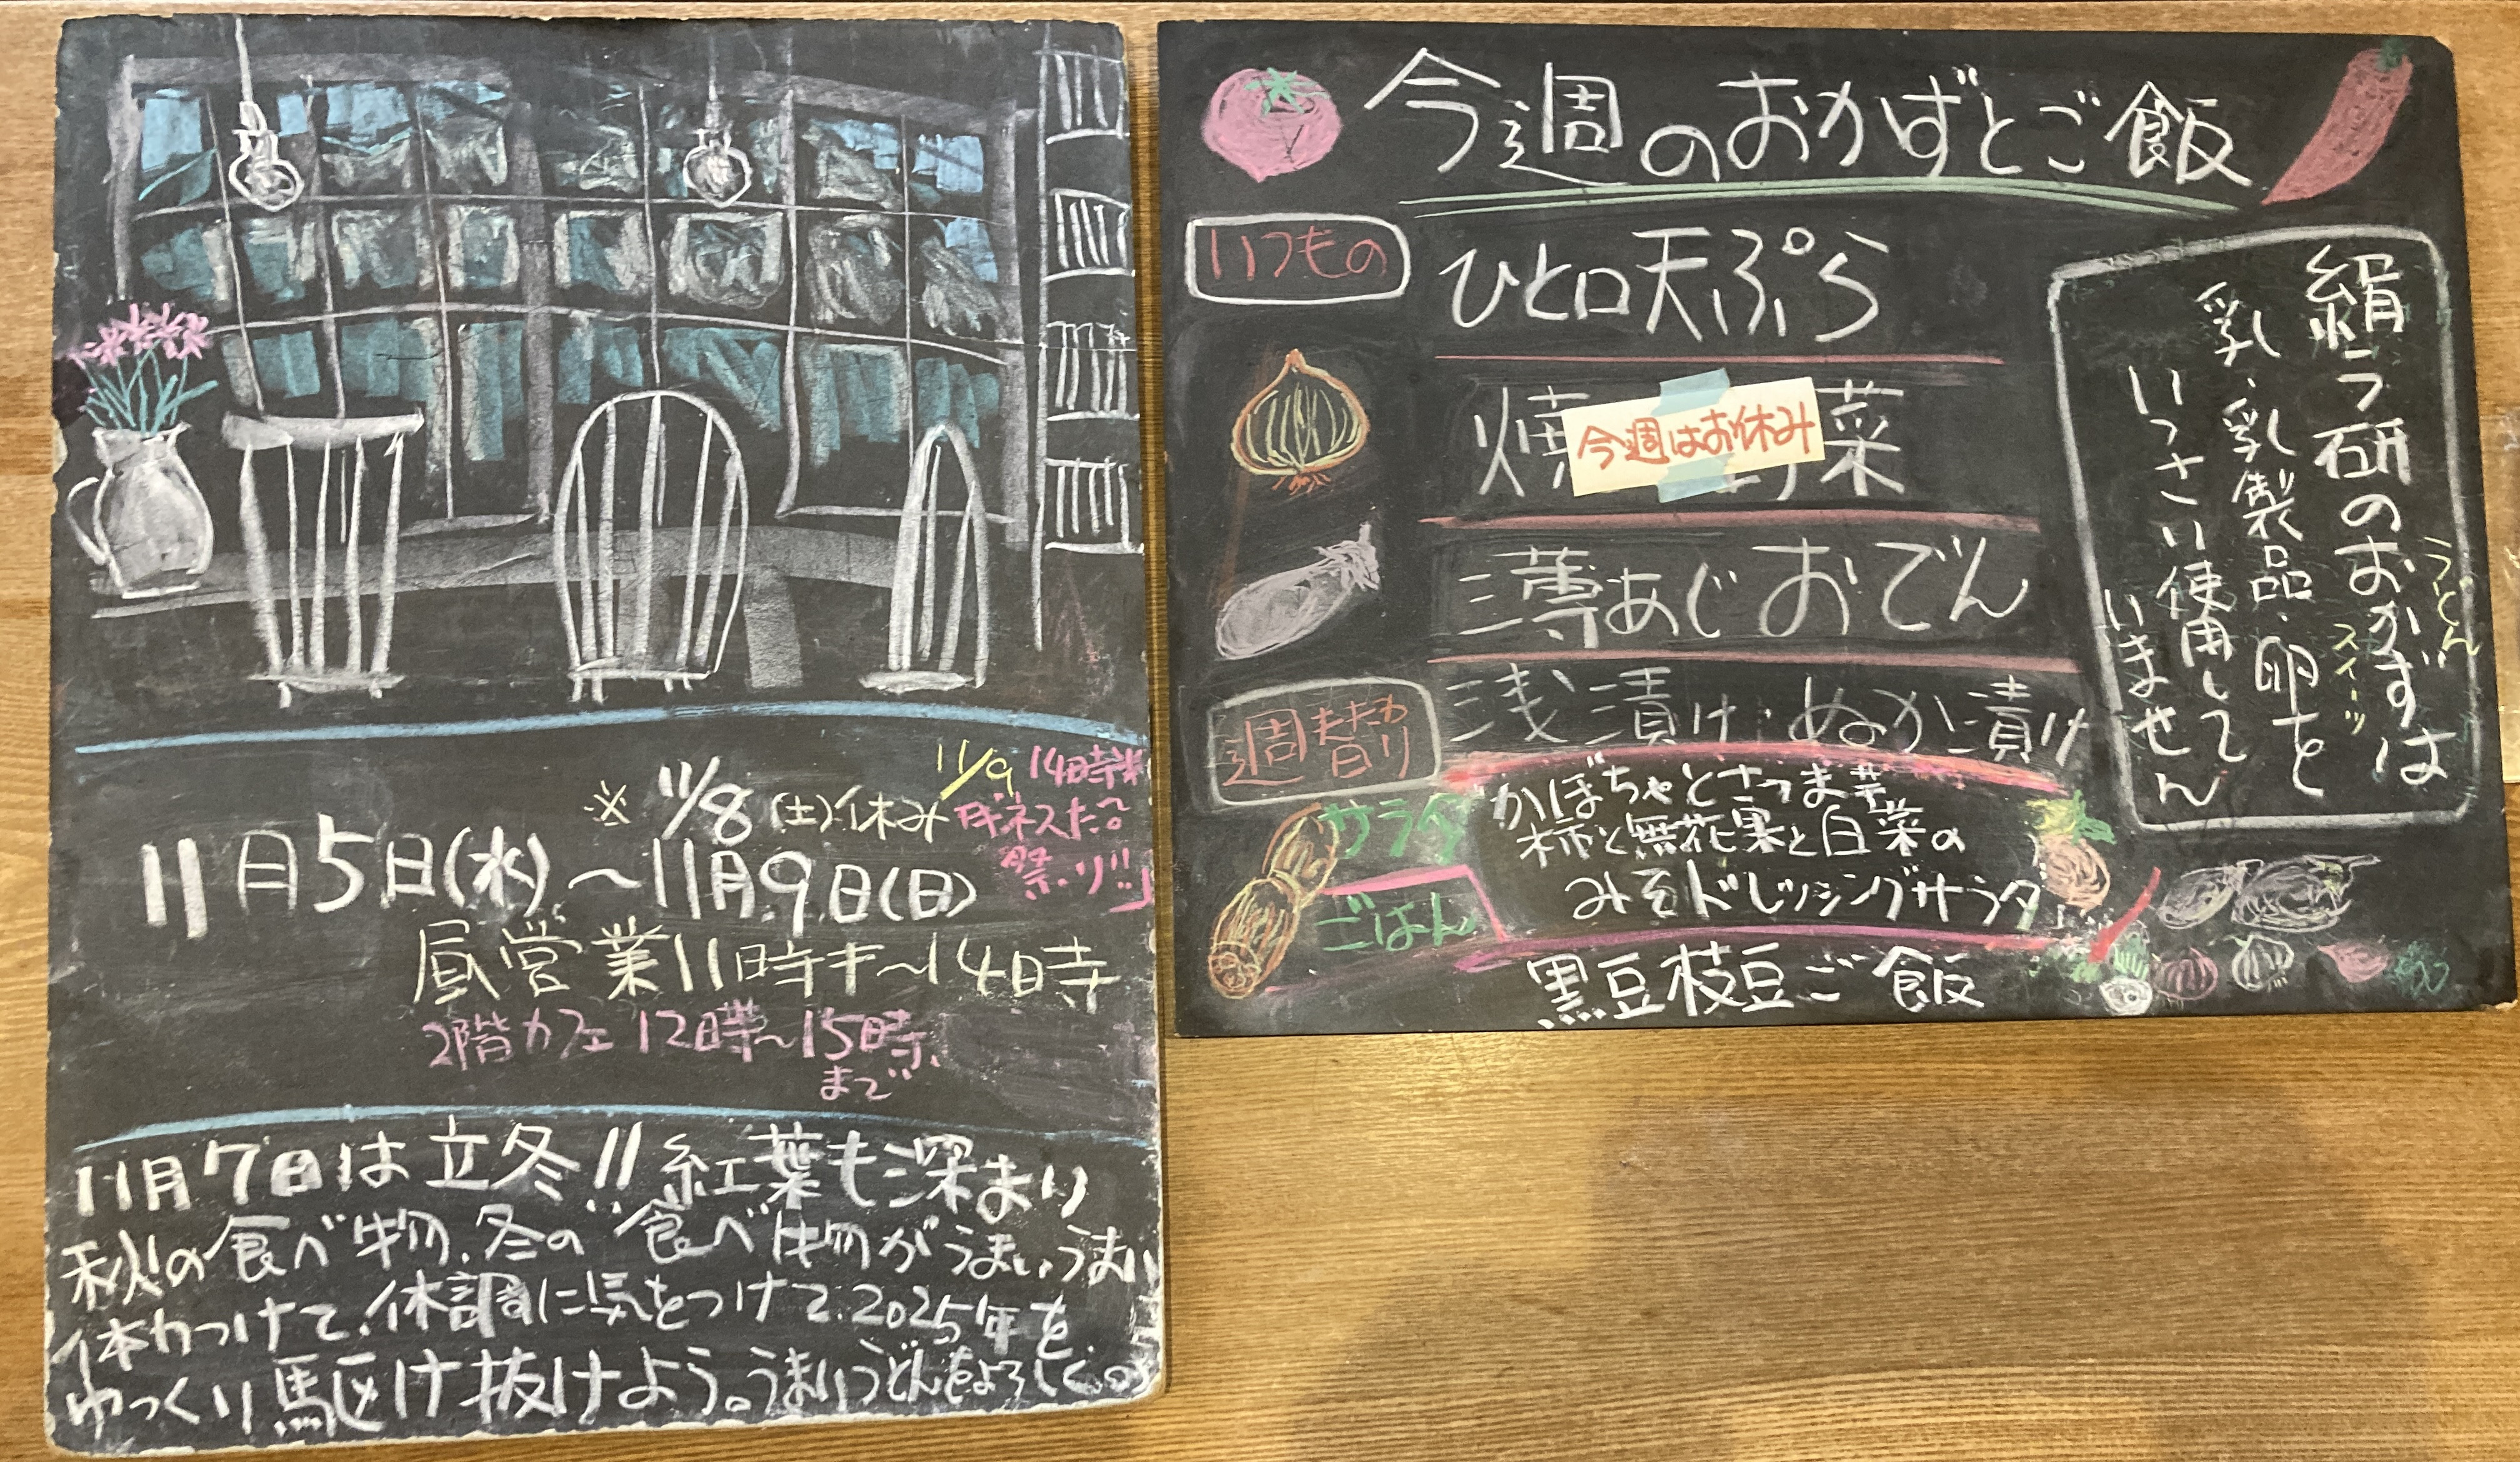 ※ 11/8(土)休み
11/9 14時半
ギネスだ〜
祭り!!
11月5日(水)〜11月9日(日)
昼営業11時半〜14時
2階カフェ 12時〜15時
まで
11月7日は立冬!!紅葉も深まり
秋の食べ物、冬の食べ物がうまい、うまい
体力つけて、体調に気をつけて2025年を
ゆっくり駆け抜けよう。うまいうどんをよろしく。
今週のおかずとご飯
いつもの
ひと口天ぷら
焼 菜
今週はお休み
薄あじおでん
浅漬け・ぬか漬け
週替わり
サラダ
かぼちゃとさつま芋
柿と無花果と白菜の
みそドレッシングサラダ
ごはん
黒豆枝豆ご飯
絹う研のおかずは
うどん
スイーツ
乳・乳製品・卵を
いっさい使用して
いません